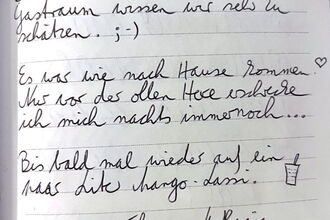 Gastraum wissen wir sehr zu
schätzen. ;-)
Es war wie nach Hause kommen.
Nur vor der ollen Hexe erschrecke
ich mich nachts immernoch...
Bis bald mal wieder auf ein
paar Liter Mango-Lassi.